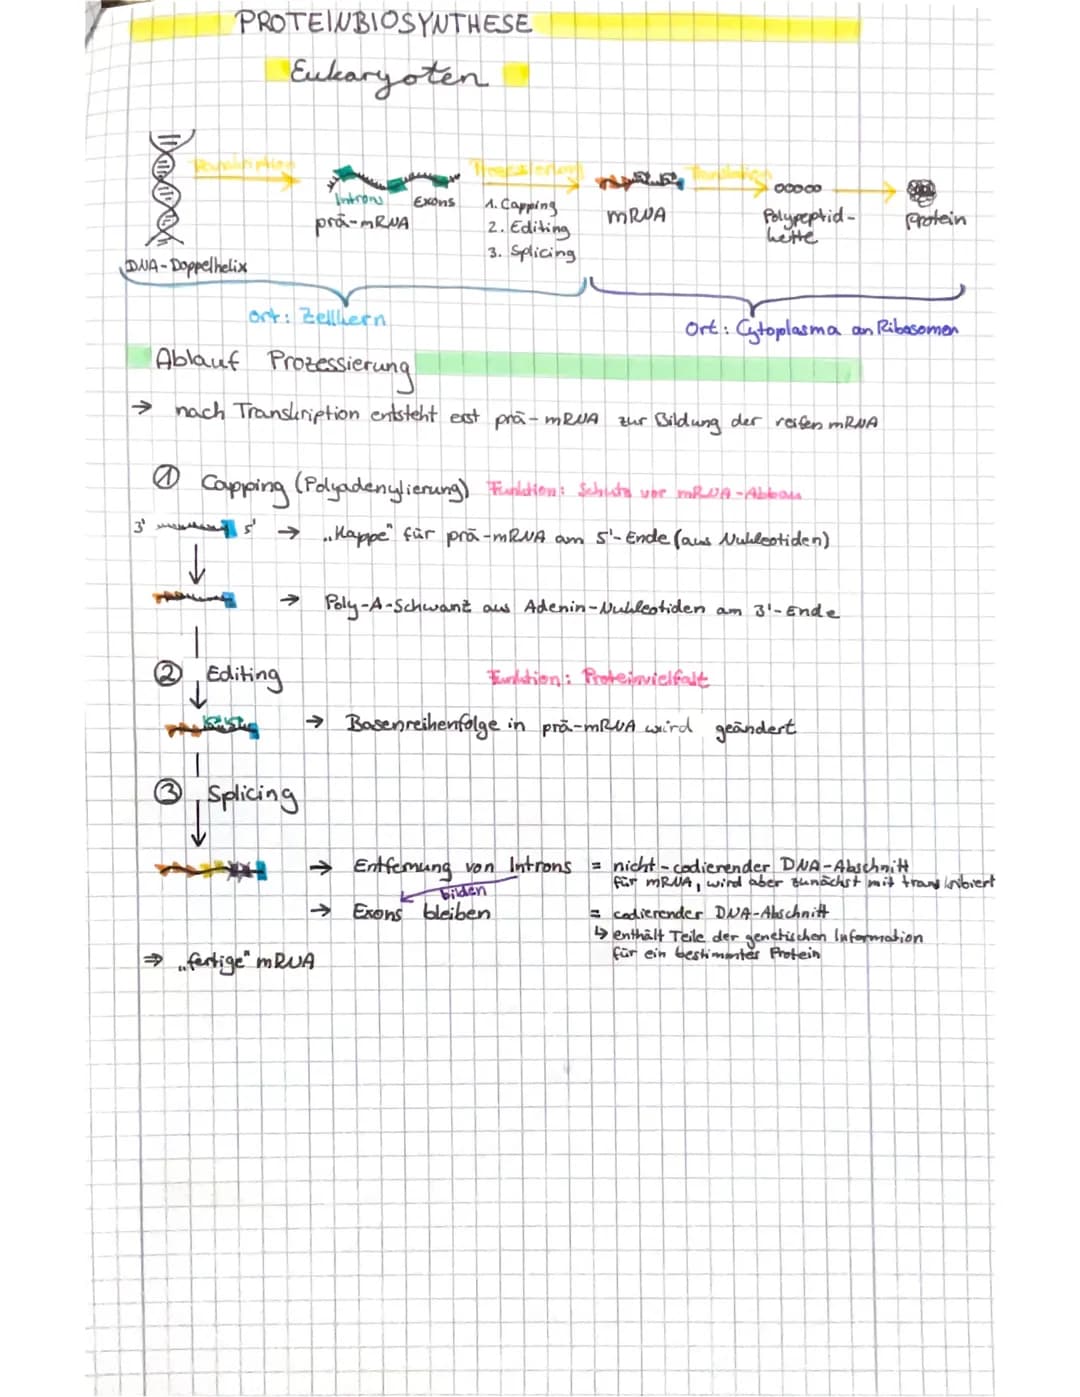 PROTEINBIOSYNTHESE
Eukaryoten
Transkription
Prozessierung
Translation
Introns
Exons
prä-mRNA
1. Capping
2. Editing
3. Splicing
mRNA
Polypeptid-
kette
Protein
DNA-Doppelhelix
Ort: Zellkern
Ort: Cytoplasma an Ribosomen
Ablauf Prozessierung
→ nach Transkription entsteht erst prä-mRNA zur Bildung der reifen mRNA
① Capping (Polyadenylierung) Funktion: Schutz vor mRNA-Abbau
3' 5' → „Kappe" für prä-mRNA am 5'-Ende (aus Nukleotiden)
→ Poly-A-Schwanz aus Adenin-Nukleotiden am 3'-Ende
② Editing Funktion: Proteinvielfalt
→ Basenreihenfolge in prä-mRNA wird geändert
③ Splicing
→ Entfernung von Introns = nicht-codierender DNA-Abschnitt
für mRNA, wird aber zunächst mit transkribiert
bilden
→ Exons bleiben = codierender DNA-Abschnitt
↳ enthält Teile der genetischen Information
für ein bestimmtes Protein
⇒ „fertige" mRNA